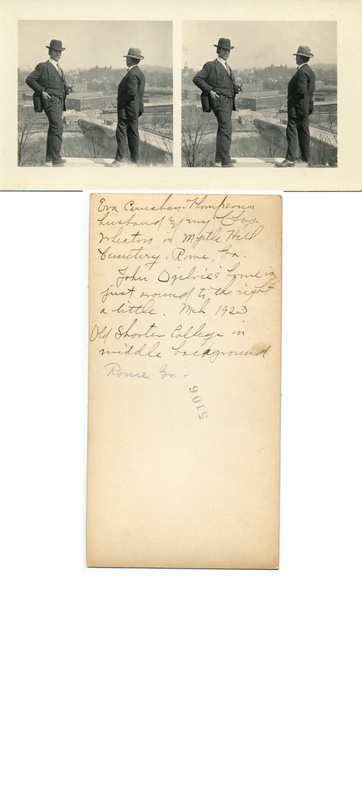 Eva Carnahan-Thompson's
husband & my
Wheaton in Myrtle Hill
Cemetery, Rome, Ga.
John Ogilvie's home is
just around to the right
a little. Mch 1923
Old Shorter College in
middle background
Rome, Ga-
5106